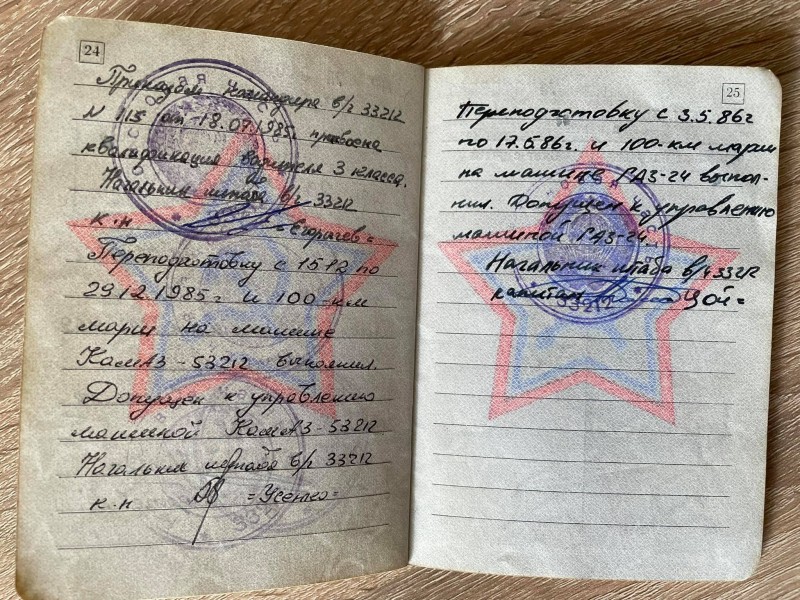 24
Приказом командира в/ч 33212
N 115 от 18.07.1985г. присвоена
квалификация водителя 3 класса.
Начальник штаба в/ч 33212
к-н =Егорычев=
Переподготовку с 15 12 по
29.12.1985г и 100-км
марш на машине
КамАЗ-53212 выполнил.
Допущен к управлению
машиной КамАЗ-53212
Начальник штаба в/ч 33212
к-н =Усенко=
25
Переподготовку с 3.5.86г
по 17.5.86г. и 100-км марш
на машине ГАЗ-24 выпол-
нил. Допущен к управлению
машиной ГАЗ-24.
Начальник штаба в/ч 33212
капитан Цой=
33212